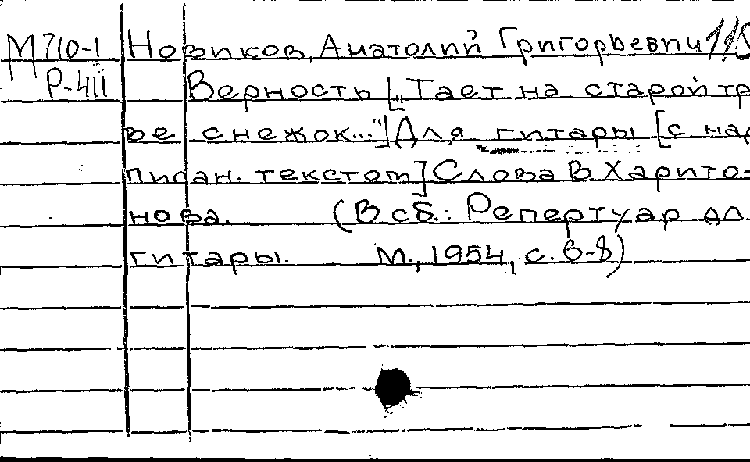 М 710-1 Новиков, Анатолий Григорьевич
Р-411 Верность ["Тает на старой тр
ве снежок..."] Для гитары [с над
писан. текстом] Слова В. Харито-
нова. (В сб.: Репертуар дл.
гитары. М., 1954, с. 6-8)